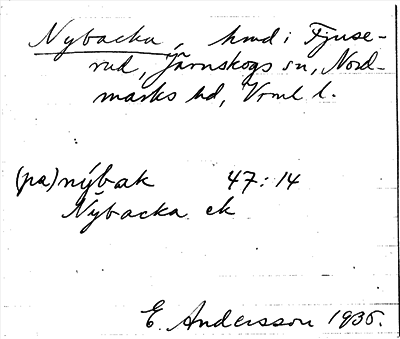 Nybacka, hmd i Fjuse-
rud, Järnskogs sn, Nord-
marks hd, Vrml l.
(pa) nýbak 47:14
Nybacka ek
E. Andersson 1936.